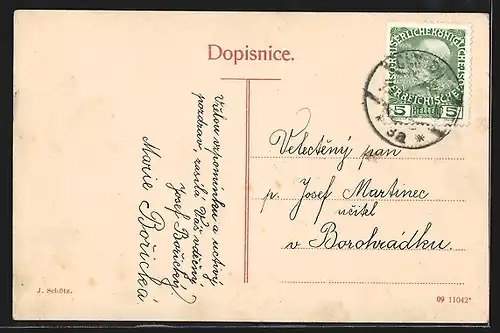 Dopisnice.
KAISERLICHE KÖNIGLICHE ÖSTERREICHISCHE POST
5 HELLER 5
* 3a *
Vřelou vzpomínku a uctivý
pozdrav, zasílá Váš vděčný
Josef Bořický
Marie Bořická
Velectěný pan
p. Josef Martinec
učitel
v Borohrádku.
J. Schütz.
09 11042*